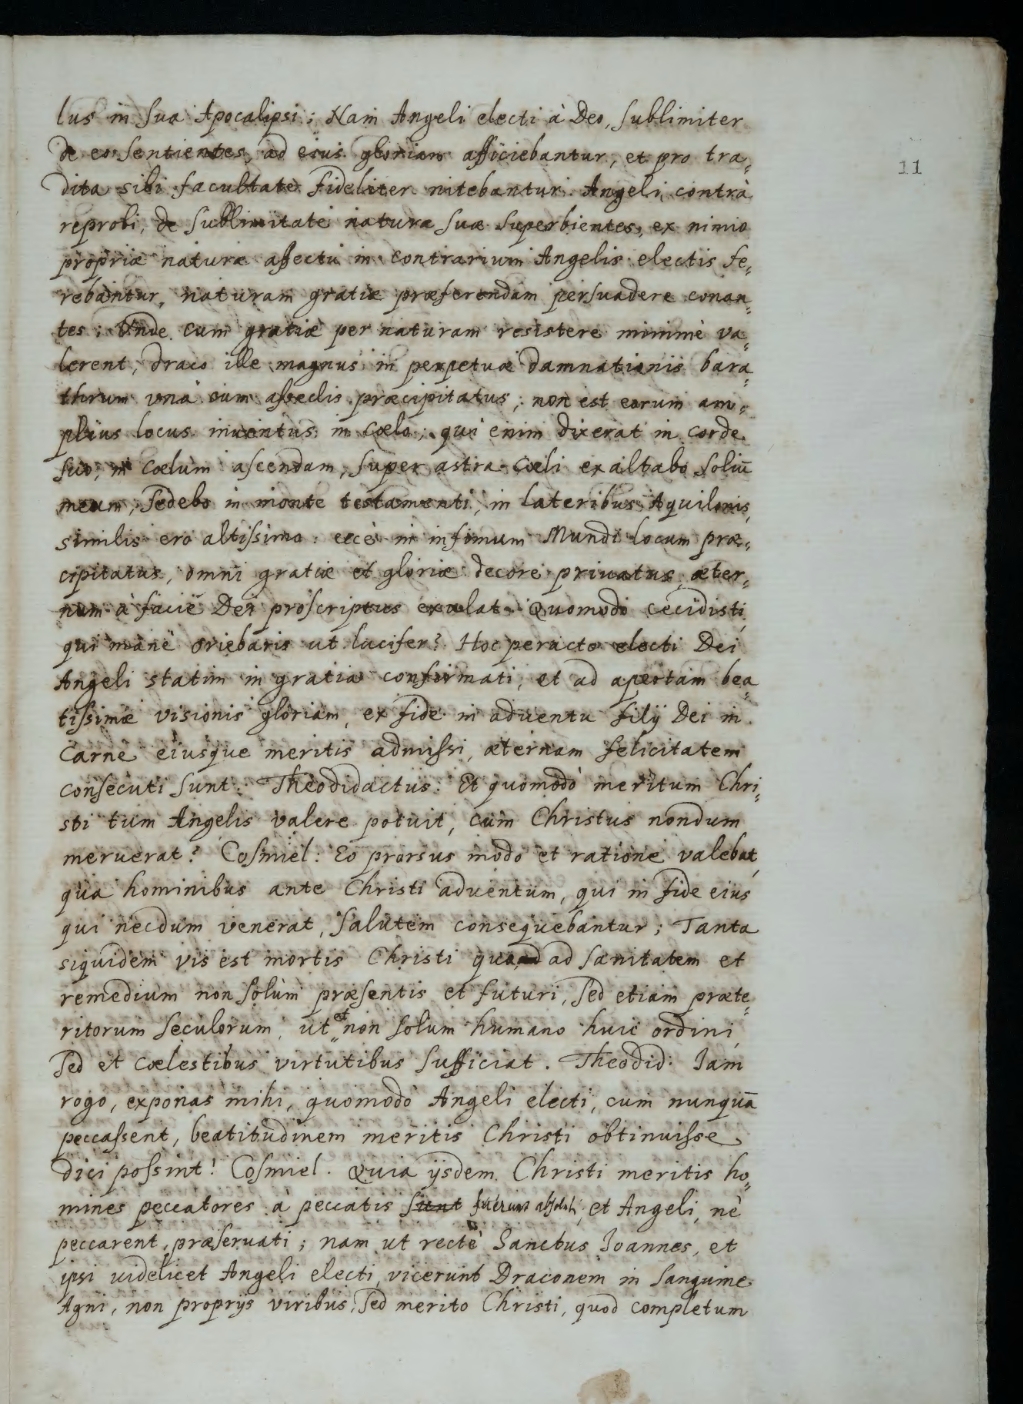 lus in sua Apocalipsi; Nam Angeli electi à Deo, sublimiter
de eo sentientes, ad eius gloriam afficiebantur, et pro tra„
dita sibi facultate fideliter nitebantur. Angeli contrà
reprobi, de sublimitate naturæ suæ superbientes, ex nimio
propriæ naturæ affectu in contrarium Angelis electis fe„
rebantur, naturam gratiæ præferendam persuadere conan„
tes; Unde cum gratiæ per naturam resistere minimè va„
lerent, draco ille magnus in perpetuæ damnationis bara„
thrum unà cum asseclis præcipitatus; non est eorum am„
plius locus inuentus in Cœlo; qui enim dixerat in corde
suo, in Cœlum ascendam, super astra Cœli exaltabo soliũ
meum, sedebo in monte testamenti, in lateribus Aquilonis,
similis ero altissimo: eccè in infimum Mundi locum præ„
cipitatus, omni gratiæ et gloriæ decore priuatus, æter„
num à faciè Dei proscriptus exulat. Quomodò cecidisti
qui manè oriebaris ut lucifer? Hoc peracto electi Dei
Angeli statim in gratia confirmati, et ad apertam bea„
tissimæ visionis gloriam, ex fide in aduentu filij Dei in
Carne eiusque meritis admissi, æternam felicitatem
consecuti sunt. Theodidactus. Et quomodò meritum Chri„
sti tum Angelis valere potuit, cum Christus nondum
meruerat? Cosmiel. Eo prorsus modo et ratione valebat,
qua hominibus ante Christi aduentum, qui in fide eius
qui necdum venerat, salutem consequebantur; Tanta
siquidem vis est mortis Christi ad sanitatem et
remedium non solùm præsentis et futuri, sed etiam præte„
ritorum seculorum, ut et non solum humano huic ordini,
sed et cœlestibus virtutibus sufficiat. Theodid: Iam
rogo, exponas mihi, quomodò Angeli electi, cum nunquã
peccassent, beatitudinem meritis Christi obtinuisse
dici possint! Cosmiel. Quia ijsdem Christi meritis ho„
mines peccatores à peccatis sunt fuerunt absoluti, et Angeli, nè
peccarent, præseruati; nam ut rectè Sanctus Ioannes, et
ipsi uidelicet Angeli electi, vicerunt Draconem in sanguine
Agni, non proprijs viribus, sed merito Christi, quod completum